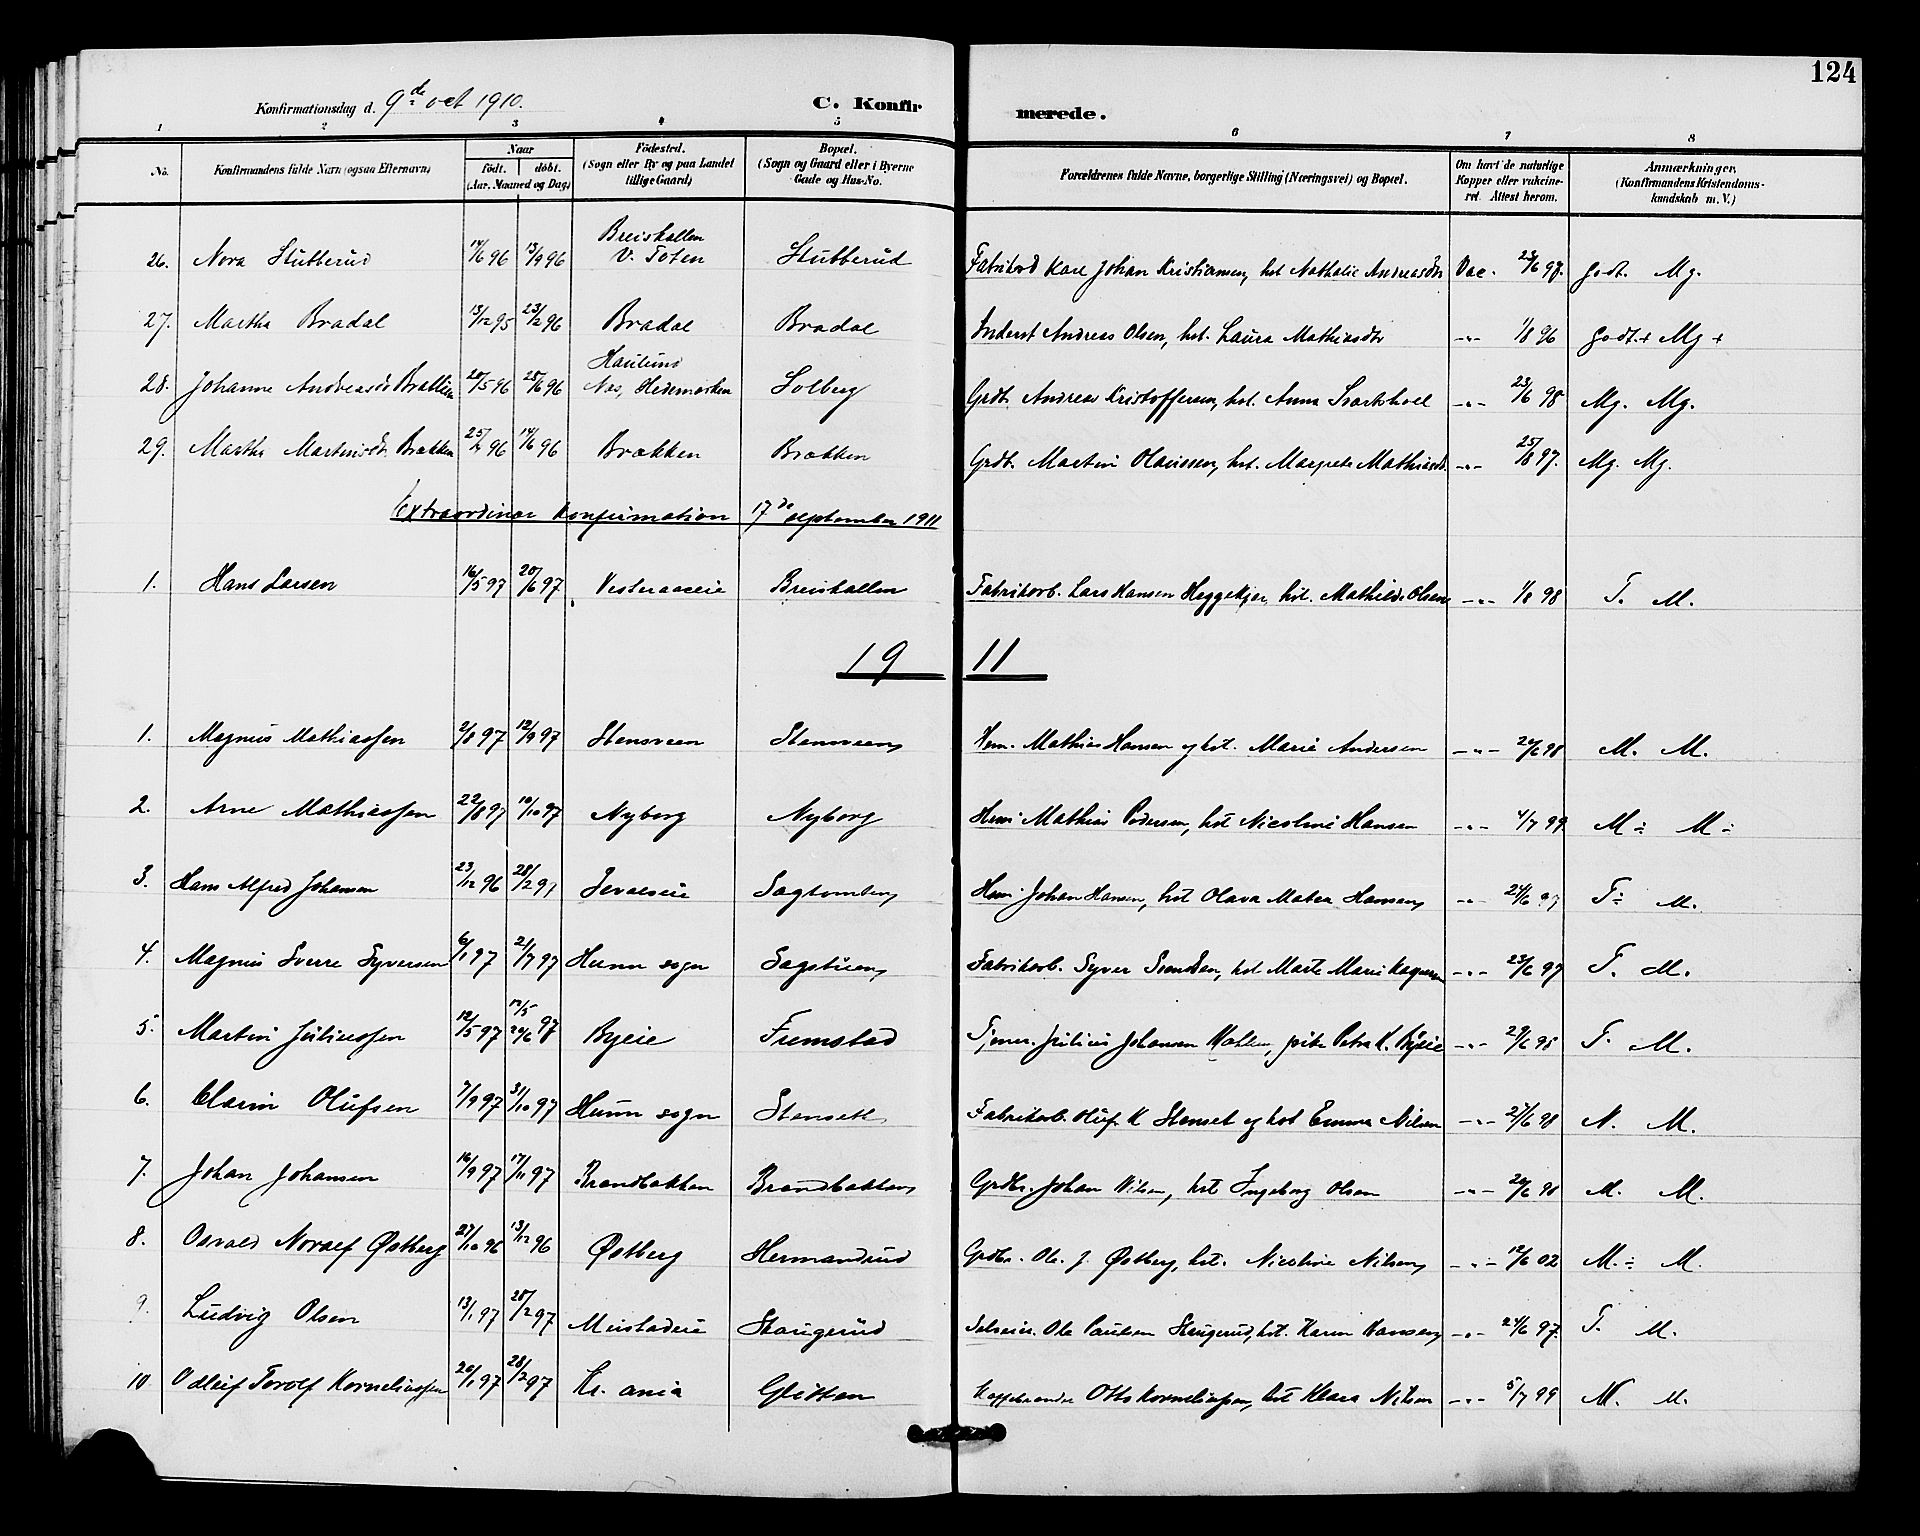 124
Konfirmationsdag d. 9de oct 1910.
C. Konfirmerede.
1 2 3 4 5 6 7 8
No. Konfirmandens fulde Navn (ogsaa Efternavn) Naar født. døbt. (Aar. Maaned og Dag) Fødested. (Sogn eller By og paa Landet tillige Gaard) Bopæl. (Sogn og Gaard eller i Byerne Gade og Hus-No. Forældrenes fulde Navne, borgerlige Stilling (Næringsvei) og Bopæl. Om havt de naturlige Kopper eller vakcineret. Attest herom. Anmærkninger, (Konfirmandens Kristendomskundskab m. V.)
26. Nora Stubberud 14/6 96 13/9 96 Breiskallen V. Toten Stubberud Fabrikarb Karl Johan Kristiansen, hst Nathalie Andreasdtr Vac. 29/6 97. godt. Mg.
27. Martha Bradal 13/12 95 23/2 96 Bradal Bradal Inderst Andreas Olsen, hst. Laura Mathiasdtr -"- 1/8 96 godt + Mg +
28. Johanne Andreasdtr Bratlien 20/5 96 28/6 96 Næs, Hedemarken Solberg Grdb. Andreas Kristoffersen, hst. Anna -"- 23/6 98 Mg. Mg.
29. Martha Martinsdtr Brækken 25/4 96 14/6 96 Brækken Brækken Grdb. Martin Olaussen, hst. Margrete Mathiasdtr. -"- 25/8 97. Mg. Mg.
Extraordinær konfirmation 17de september 1911
1. Hans Larsen 16/5 97 20/6 97 Vesteraaseie Breiskallen Fabrikarb. Lars Hansen Heggekjær, hst. Mathilde Olsen -"- 1/8 98 T. M.
1911
1. Magnus Mathiassen 2/8 97 12/9 97 Stensveen Stensveen Hsm. Mathias Hansen og hst. Marie Andersen -"- 24/6 98 M. M.
2. Arne Mathiassen 22/8 97 10/10 97 Nyborg Nyborg Hsm Mathias Pedersen, hst Nicoline Hansen -"- 4/7 99 M ÷ M ÷
3. Hans Alfred Johansen 23/12 96 28/2 97 Sagtomten Hsm Johan Hansen, hst Olava Matea Hansen -"- 24/6 97 T ÷ M.
4. Magnus Sverre Syversen 6/1 97 21/7 97 Hunn sogn Sagstuen Fabrikarb. Syver Svendsen, hst Marte Marie -"- 23/6 97 T. M.
5. Martin Juliussen 12/5 97 12/5 20/6 97 Byeie Fremstad Tjener. Julius Johansen, pike Petra K. Byeie -"- 29/6 98 T. M.
6. Clarin Olufsen 7/9 97 31/10 97 Hunn sogn Stenseth Fabrikarb. Oluf K Stenset og hst Emma Nilsen -"- 27/6 98 N. M.
7. Johan Johansen 16/9 97 17/11 97 Brendbakken Brendbakken Grdbr. Johan Nilsen, hst Ingeborg Olsen -"- 20/6 98 M. M.
8. Osvald Noralf Østberg 27/10 96 13/12 96 Østberg Hermandrud Grdbr. Ole J. Østberg, hst. Nicoline Nilsen -"- 12/6 02 M. ÷ M.
9. Ludvig Olsen 13/1 97 28/2 97 Meistadeie Haugerud Selveier. Ole Paulsen Haugerud, hst. Karen Hansen -"- 24/6 97. T. M.
10 Odleif Torolf Korneliussen 20/1 97 28/2 97 Kr.ania Glitten Otto Korneliussen, hst Klara Nilsen -"- 5/7 99 M. M.